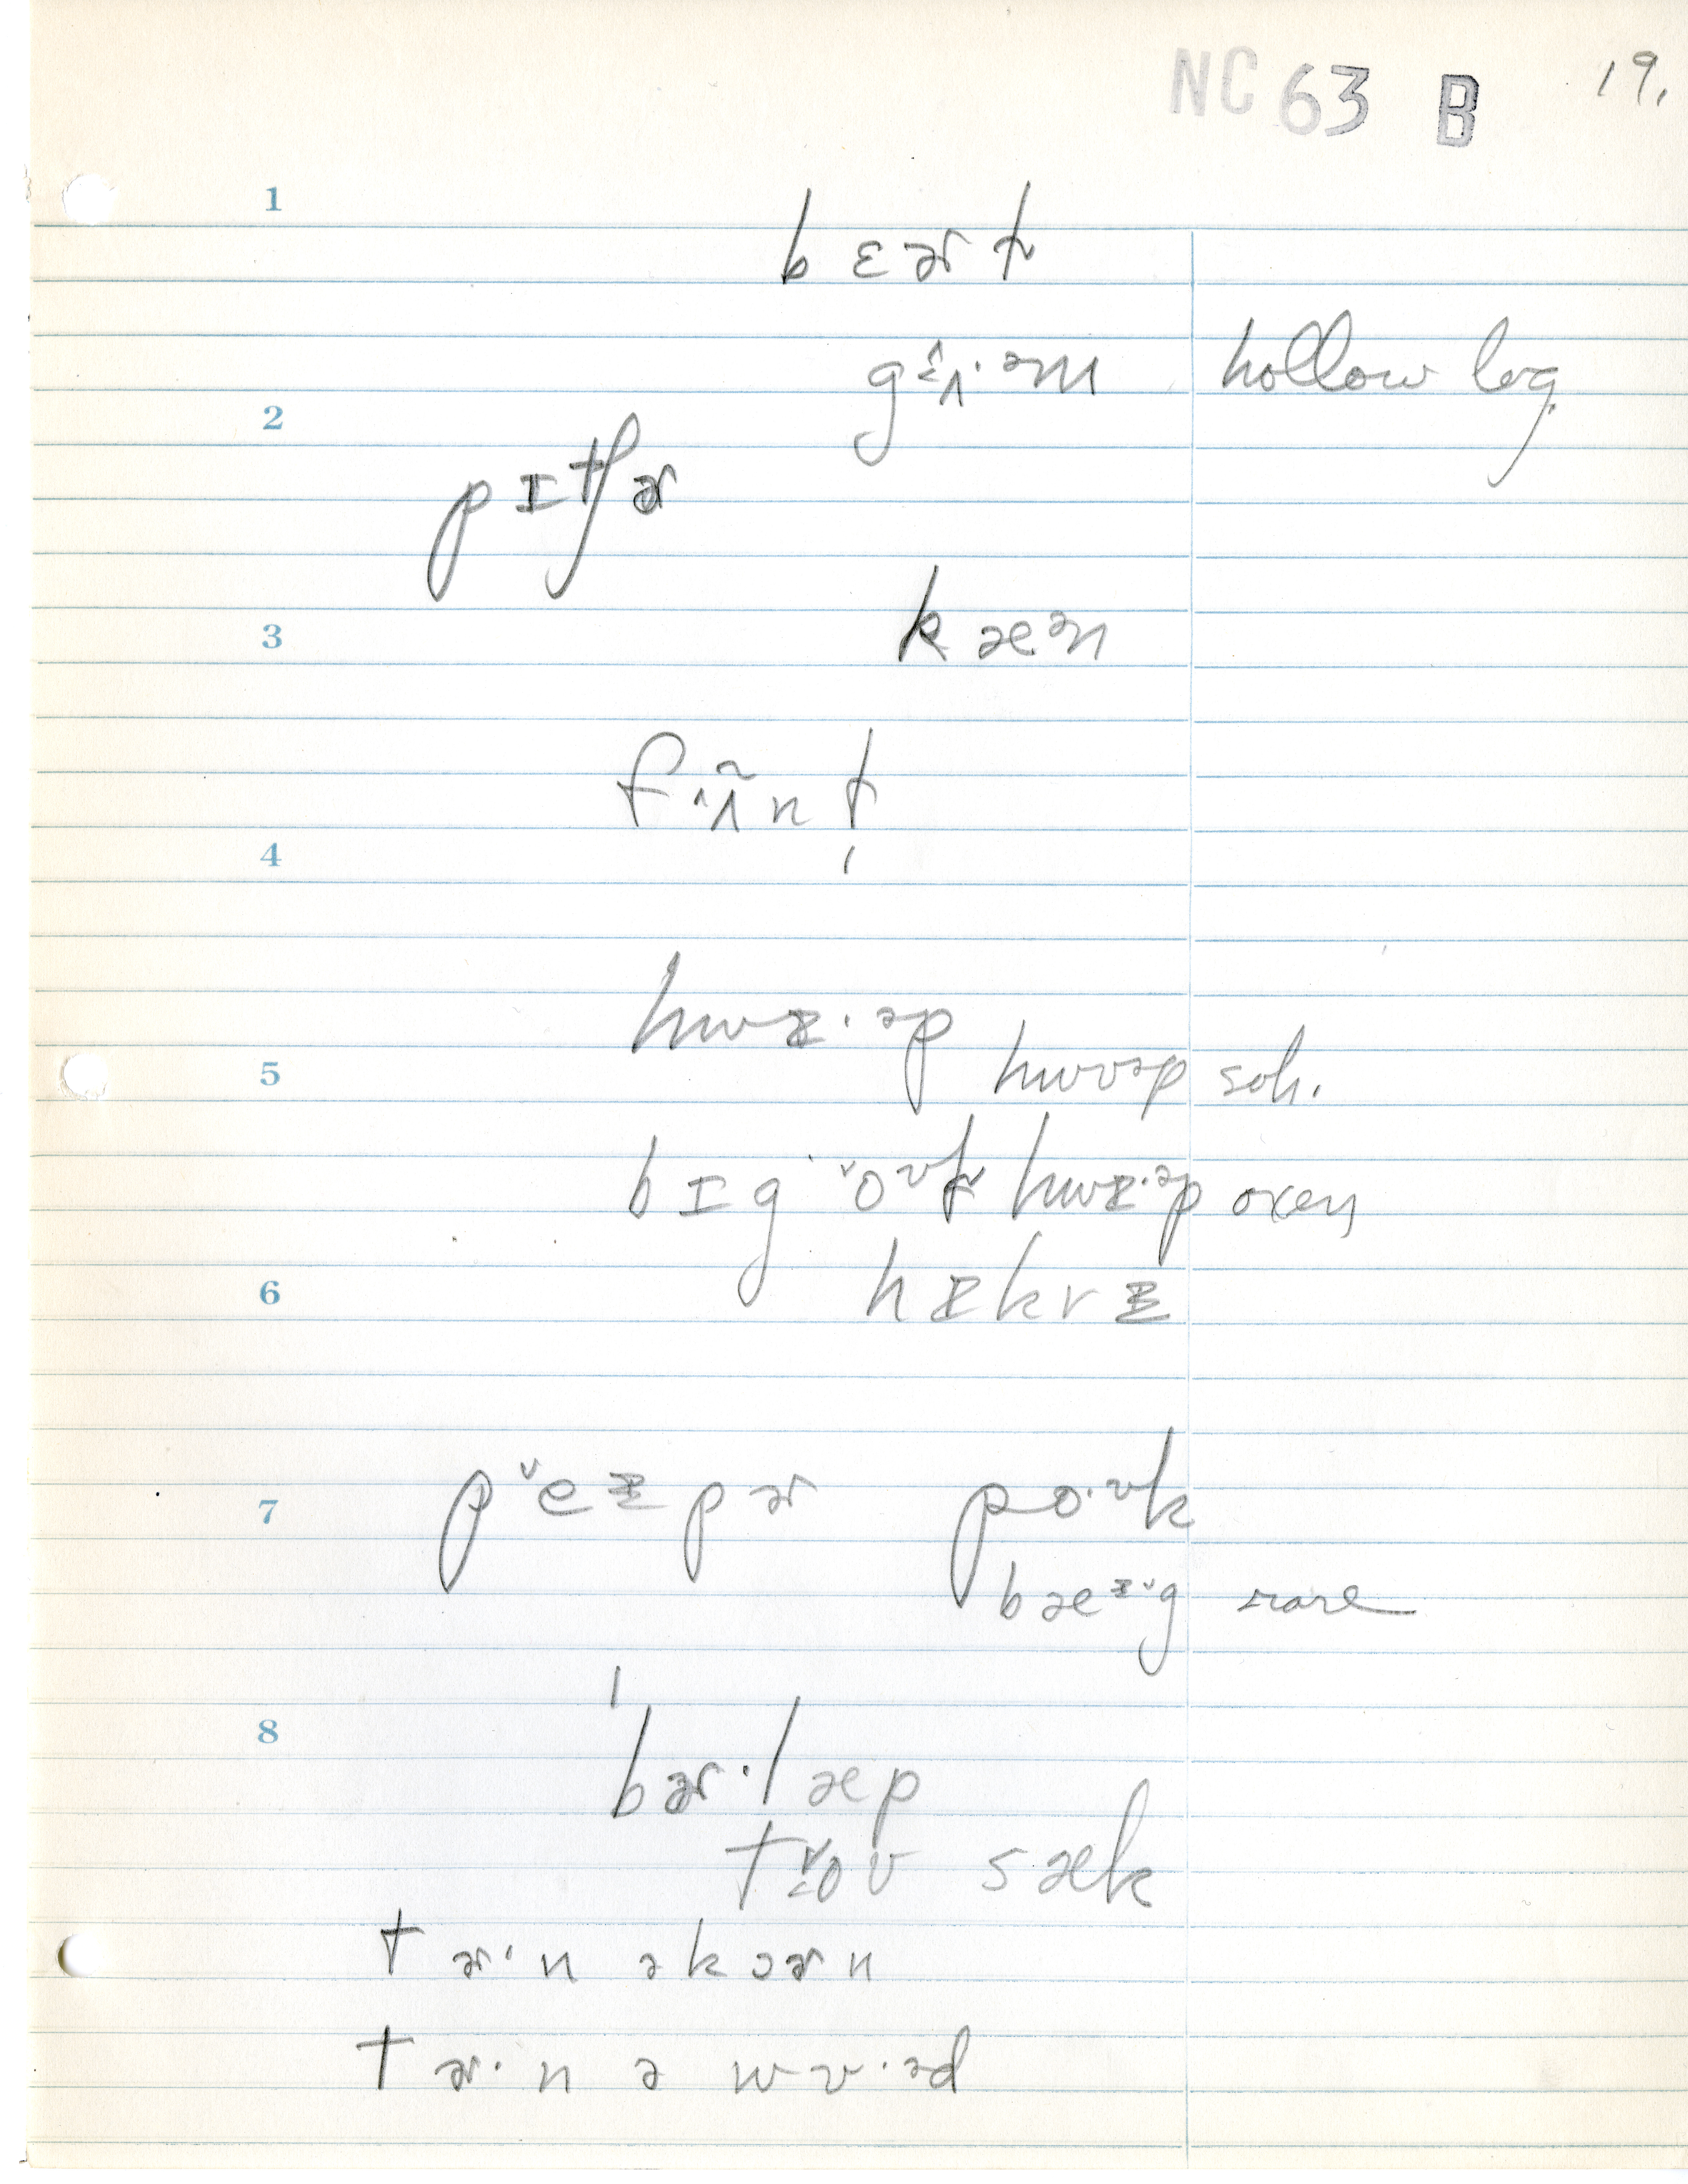 NC 63 B 19.
1
bɛɚt̬
gɜ̭ʌ·əm hollow log
2
pɪtʃɚ
3 kæən
fʌ̃nt̬
4
hwᵻ·əp
5 hwʊəp soh.
bɪg o̬ʊt̬ hwᵻ·əp oxen
6 hᵻkrᵻ
7 pe̬ᵻpɚ po·ʊk
bæᵻg rare
8
ˈbɚ·læp
to̬ʊ sæk
tɚ·n ə kɔɚn
tɚ·n ə wʊ·əd